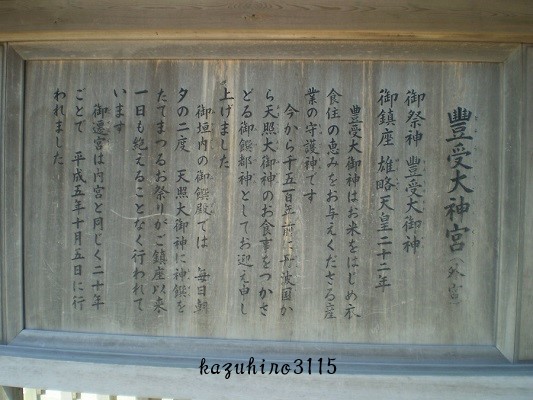 豐受大神宮（外宮）
御祭神 豐受大御神
御鎮座 雄略天皇二十二年
豐受大御神はお米をはじめ衣
食住の恵みをお与えくださる産
業の守護神です
今から千五百年前に丹波国か
ら天照大御神のお食事をつかさ
どる御饌都神としてお迎え申し
上げました
御垣内の御饌殿では 毎日朝
夕の二度 天照大御神に神饌を
たてまつるお祭りがご鎮座以来
一日も絶えることなく行われて
います
御遷宮は内宮と同じく二十年
ごとで 平成五年十月五日に行
われました
kazuhiro3115